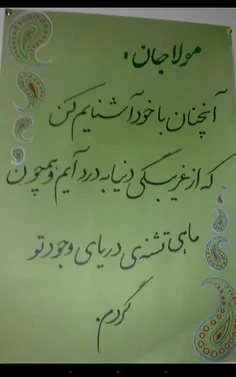 مولا جان :
آنچنان با خود آشنایم کن
که از غریبگی دنیا به درد آیم و همچون
ماهی تشنه‌ی دریای وجود تو
گردم.